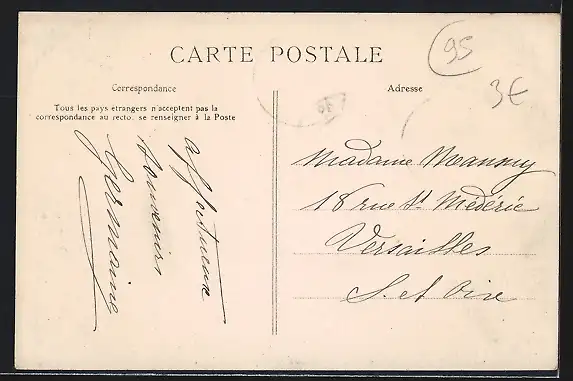 CARTE POSTALE
95
3€
Correspondance
Adresse
Tous les pays étrangers n'acceptent pas la
correspondance au recto. se renseigner à la Poste
affectueux
souvenirs
Germaine
Madame
18 rue St Médéric
Versailles
S. et Oise